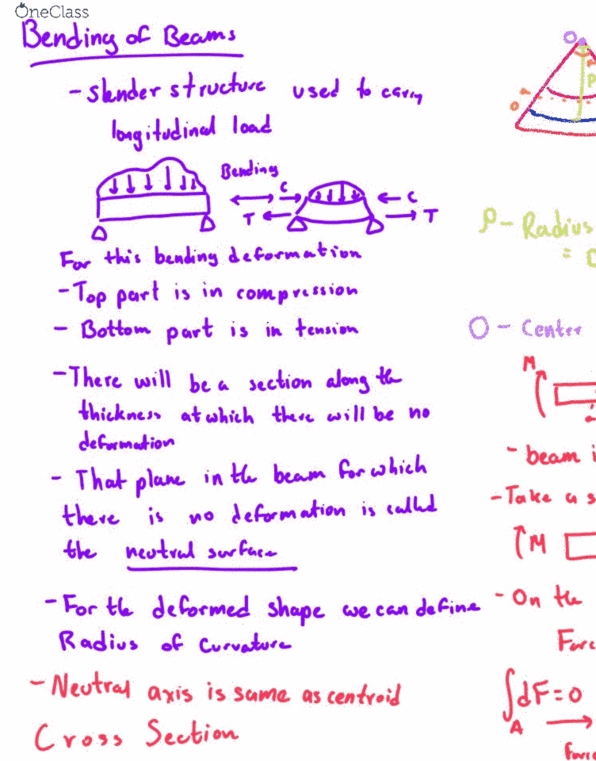 OneClass
Bending of Beams
- Slender structure used to carry
longitudinal load
Bending
C
C
T
T
For this bending deformation
- Top part is in compression
- Bottom part is in tension
- There will be a section along the
thickness at which there will be no
deformation
- That plane in the beam for which
there is no deformation is called
the neutral surface
- For the deformed shape we can define
Radius of Curvature
- Neutral axis is same as centroid
Cross Section
O
ρ
ρ - Radius
=
O - Center
M
- beam i
- Take a s
M
- On the
Forc
∫dF = 0
A
force